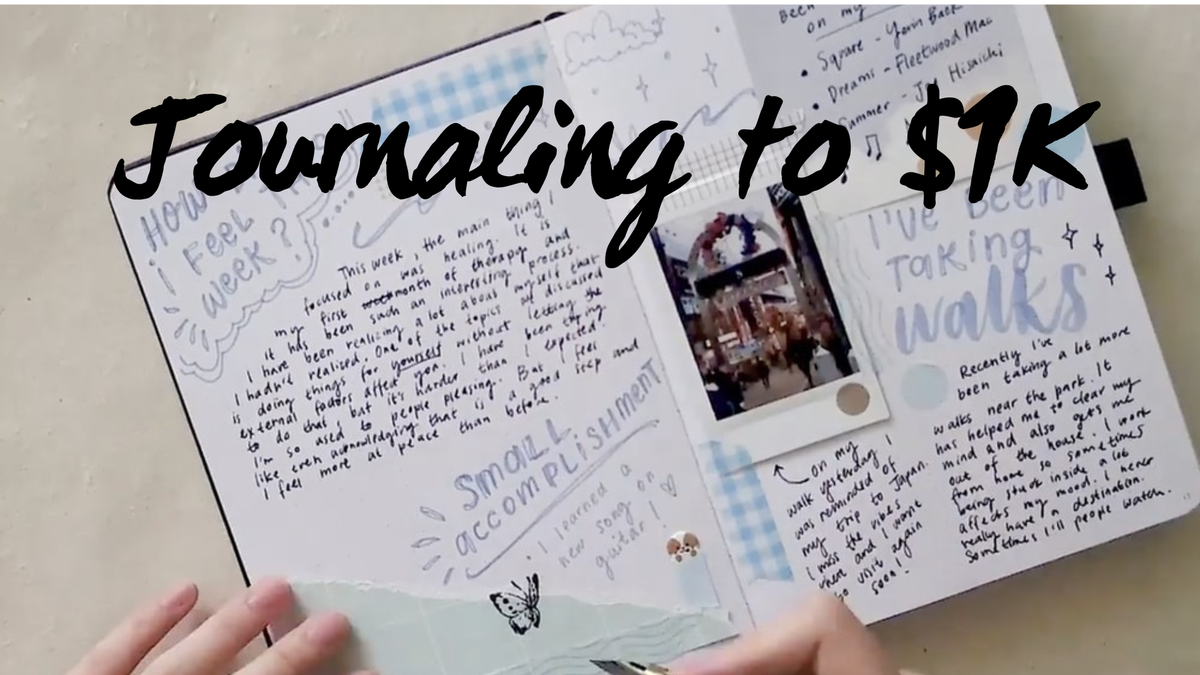 Journaling to $1K
HOW
i FEEL
week?
This week, the main thing I
focused on was healing. It is
my first month of therapy and
it has been such an interesting process.
I have been realizing a lot about myself that
I hadn't realised. One of the topics we discussed
is doing things for yourself without letting the
external factors affect you. I have been trying
to do that, but it's harder than I expected.
I'm so used to people pleasing. But I feel
like even acknowledging that is a good step and
I feel more at peace than before.
SMALL
accomplishment
I learned a
new song on
guitar!
been
on my
• Square - Yerin Baek
• Dreams - Fleetwood Mac
Summer - Joe Hisaishi
I've been
Taking
walks
Recently I've
been taking a lot more
walks near the park. It
has helped me to clear my
mind and also gets me
out of the house. I work
from home so sometimes
being stuck inside a lot
affects my mood. I never
really have a destination.
Sometimes I'll people watch.
on my
walk yesterday I
was reminded of
my trip to Japan.
I miss the vibes
there and I want
to visit again
soon!